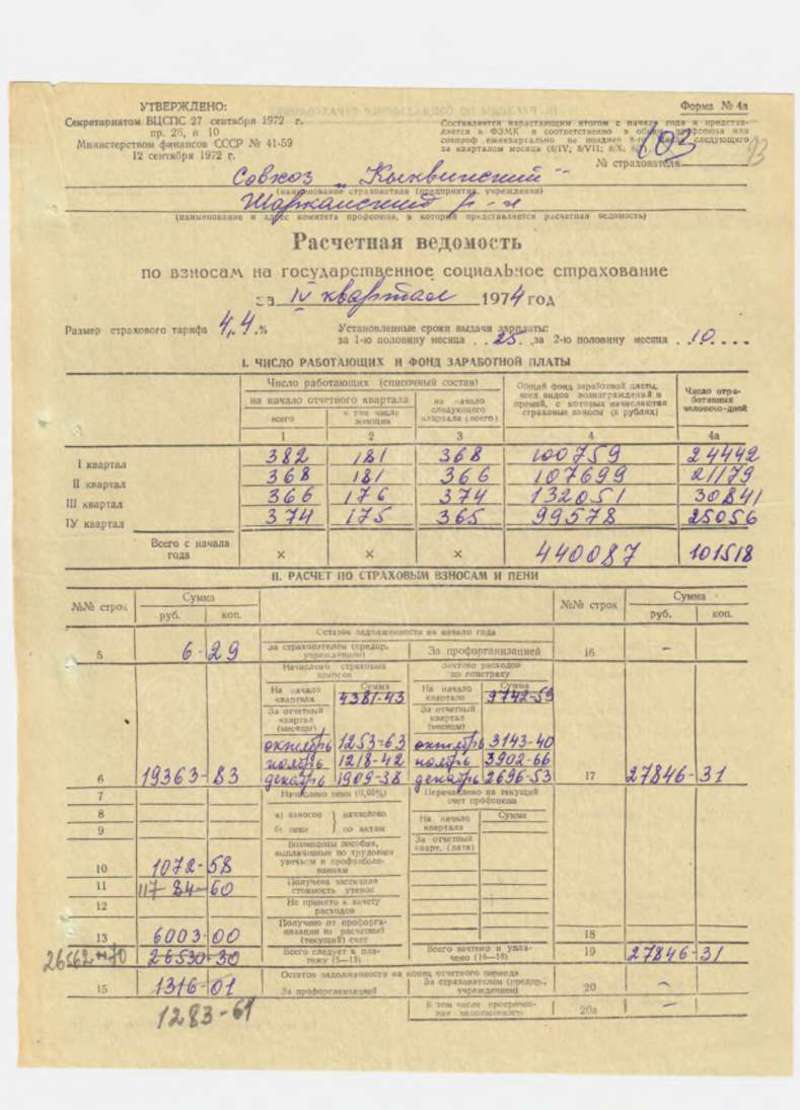 УТВЕРЖДЕНО:
Секретариатом ВЦСПС 27 сентября 1972 г.
пр. 26, п 10
Министерством финансов СССР № 41-59
12 сентября 1972 г.
Форма № 4а
Составляется нарастающим итогом с начала года и представляется в ФЗМК и соответственно в
за кварталом месяца
№ страхователя 103
93
Совхоз „Кыквинский"
(наименование страхователя (предприятия, учреждения)
Шарканский р-н
(наименование и адрес комитета профсоюза, в который представляется расчетная ведомость)
Расчетная ведомость
по взносам на государственное социальное страхование
за IV квартал 1974 год
Размер страхового тарифа 4,4 %
Установленные сроки выдачи зарплаты:
за 1-ю половину месяца 25 за 2-ю половину месяца 10
I. ЧИСЛО РАБОТАЮЩИХ И ФОНД ЗАРАБОТНОЙ ПЛАТЫ
Число работающих (списочный состав)
на начало отчетного квартала
всего
в том числе женщин
на начало следующего квартала (всего)
Общий фонд заработной платы, всех видов вознаграждений и премий, с которых начисляются страховые взносы (в рублях)
Число отработанных человеко-дней
1 2 3 4 4а
I квартал 382 181 368 100759 24442
II квартал 368 181 366 107699 21179
III квартал 366 176 374 132051 30841
IУ квартал 374 175 365 99578 25056
Всего с начала года × × × 440087 101518
II. РАСЧЕТ ПО СТРАХОВЫМ ВЗНОСАМ И ПЕНИ
№№ строк
Сумма
руб. коп.
№№ строк
Сумма
руб. коп.
Остаток задолженности на начало года
5 6-29
За страхователем (предпр., учреждением)
За профорганизацией
16 —
Начислено страховых взносов
Зачтено расходов по
На начало квартала
Сумма
4381-43
На начало квартала
Сумма
9742-59
За отчетный квартал (месяцы)
За отчетный квартал (месяцы)
октябрь 1253-63 октябрь 3143-40
ноябрь 1218-42 ноябрь 3902-66
6 19363-83 декабрь 1909-38 декабрь 2696-53 17 27846-31
7
Начислено пени
Перечислено на текущий счет профсоюза
8
9
а) взносов
б) пени
начислено по актам
На начало квартала
Сумма
За отчетный кварт. (дата)
10 1072-58
Возмещены пособия, выплаченные по трудовым увечьям и
11 117 84-60
Получена
стоимость путевок
12
Не принято к зачету расходов
13 6003-00
Получено от профорганизации на расчетный (текущий) счет
18
26562-70
26530-30
Всего следует к платежу (5—13)
Всего зачтено и уплачено (16—18)
19 27846-31
Остаток задолженности на конец отчетного периода
15 1316-01
За профорганизацией
За страхователем (предпр., учреждением)
20 —
1283-61
В том числе
20а —